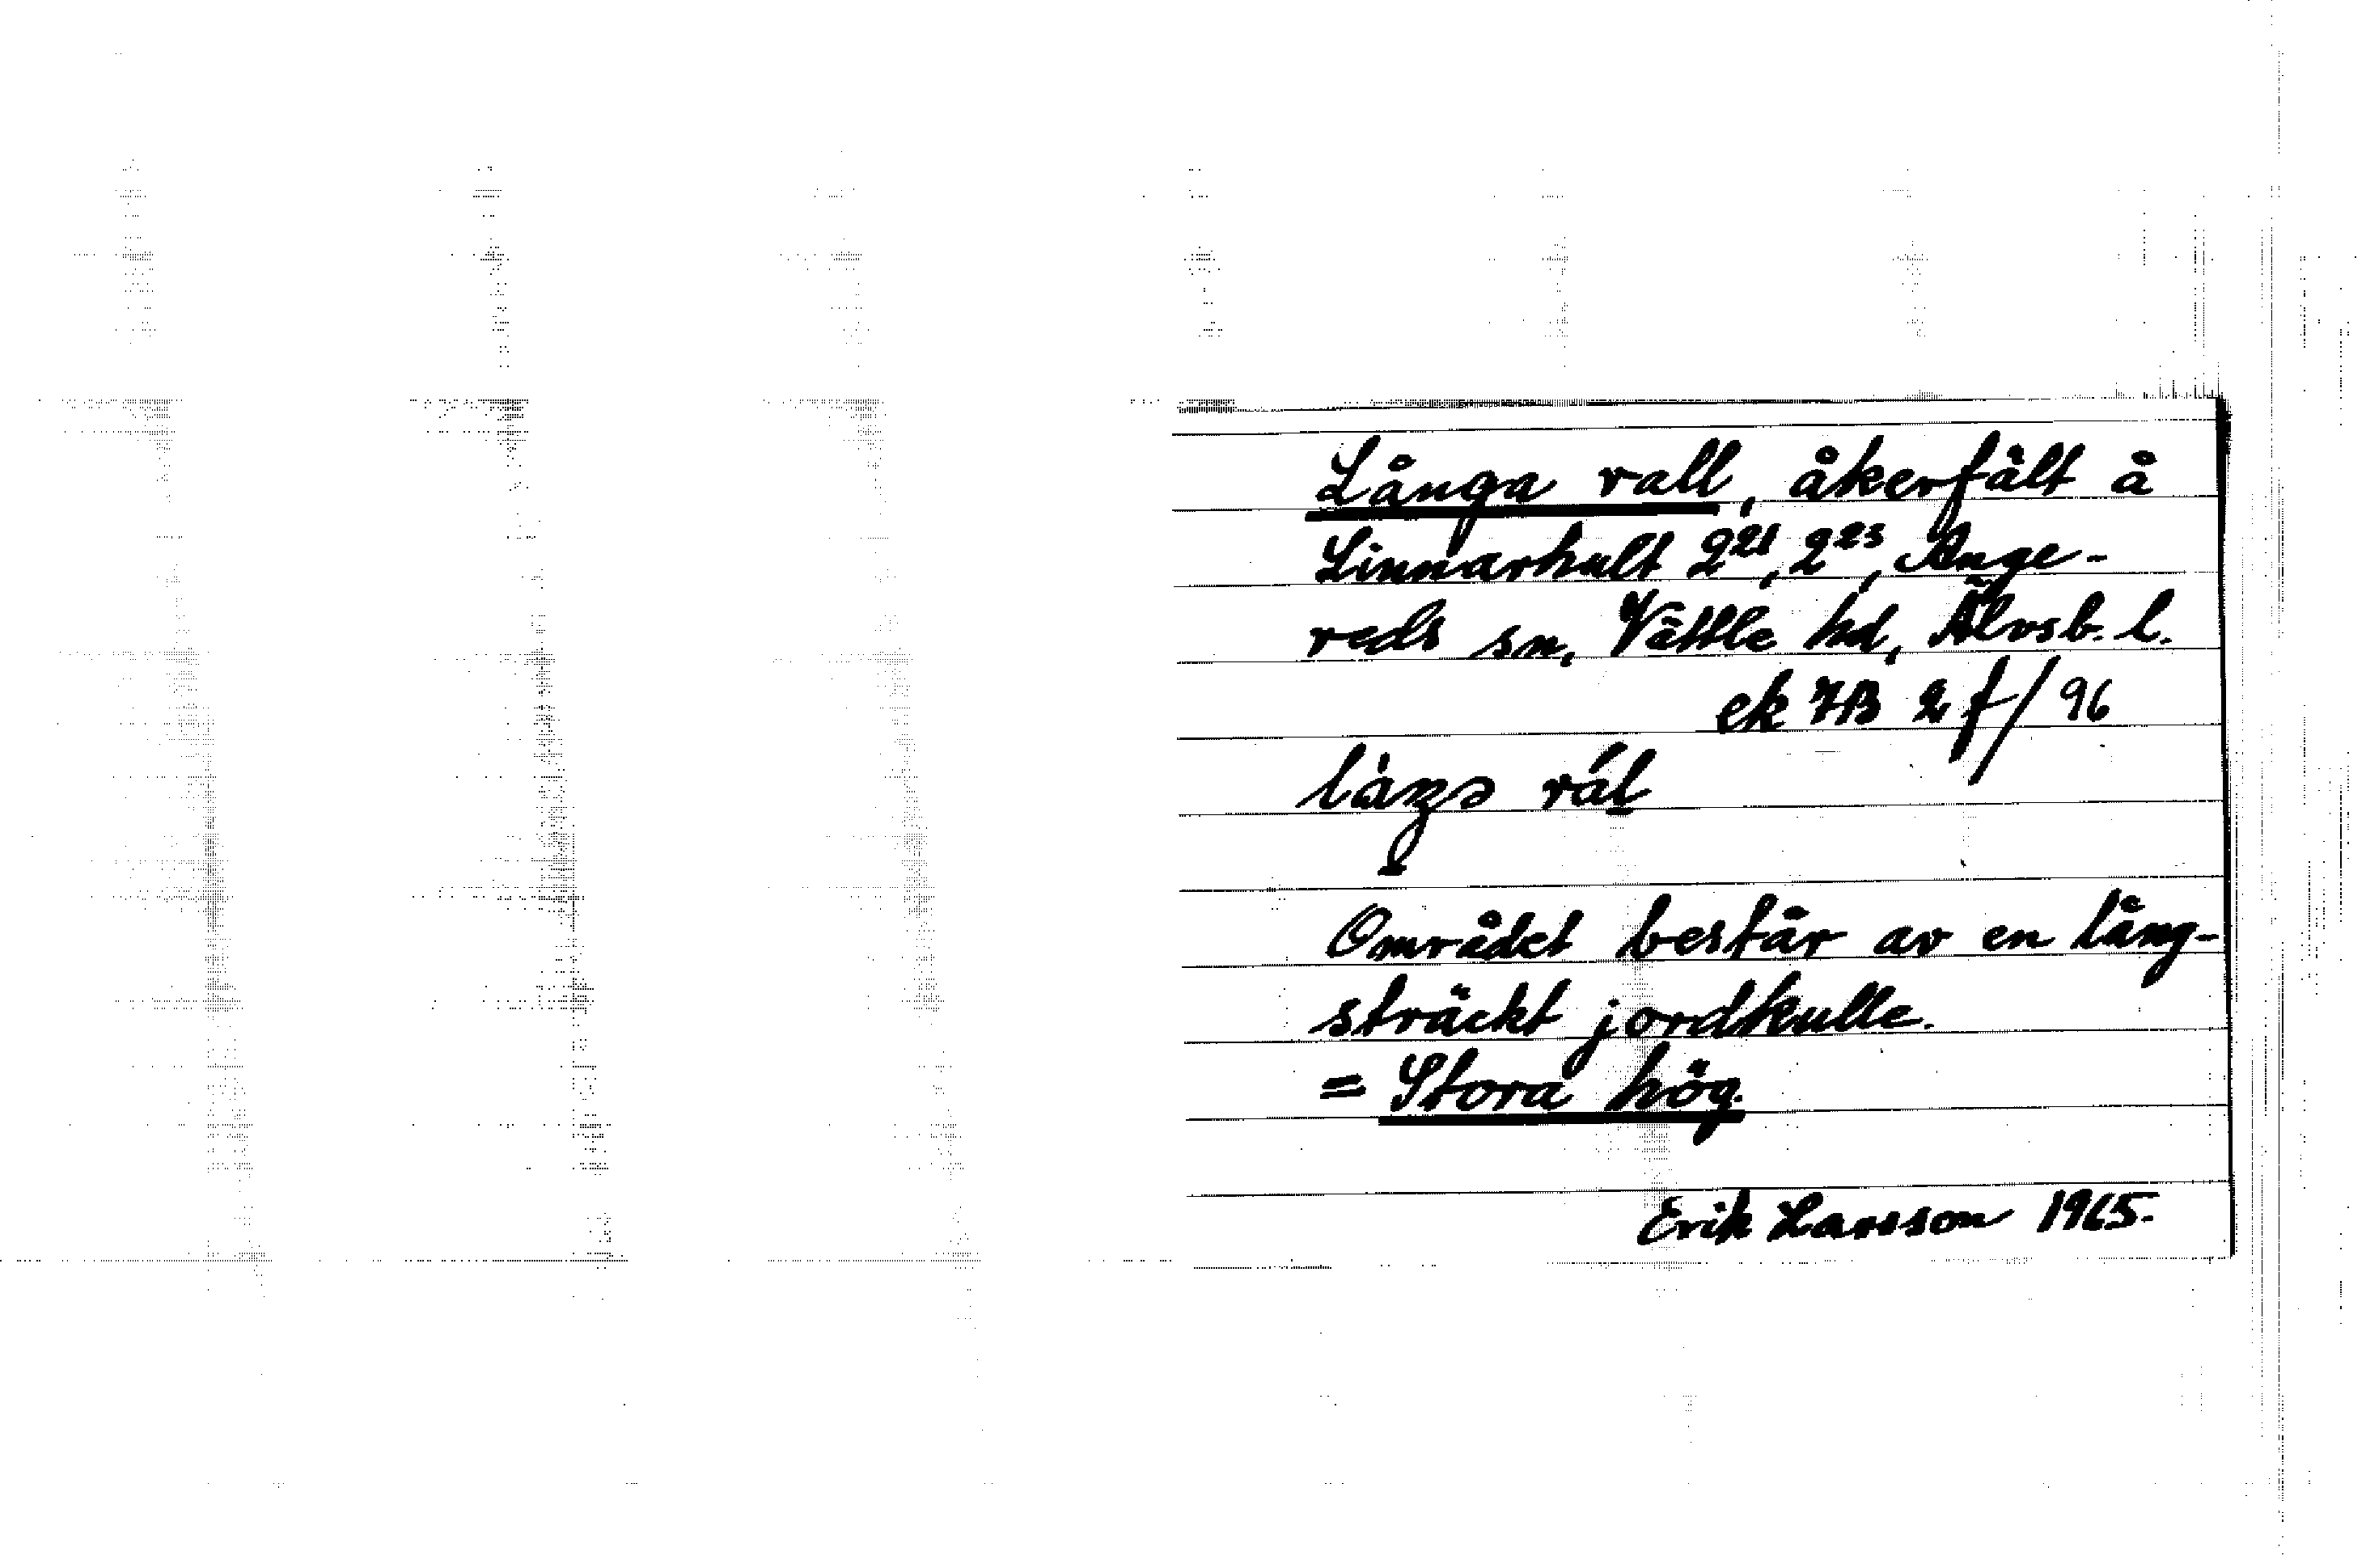 Långa rall, åkerfält å
Linnarhult 2²¹, 2²³, Ange-
reds sn, Vättle hd, Älvsb. l.
ek 7B 2 f/96
rál
Området består av en lång-
sträckt jordkulle.
= Stora hög.
Erik Larsson 1965.